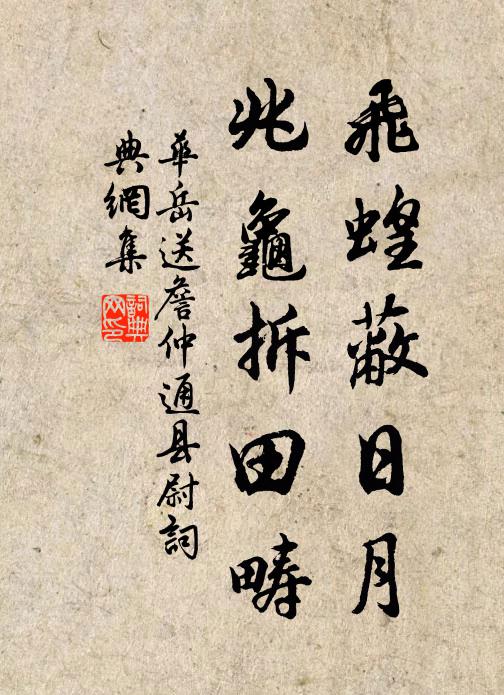 飛蝗蔽日月
兆龜拆田疇
華岳送詹仲通县尉詞
典網集
詞典
网印